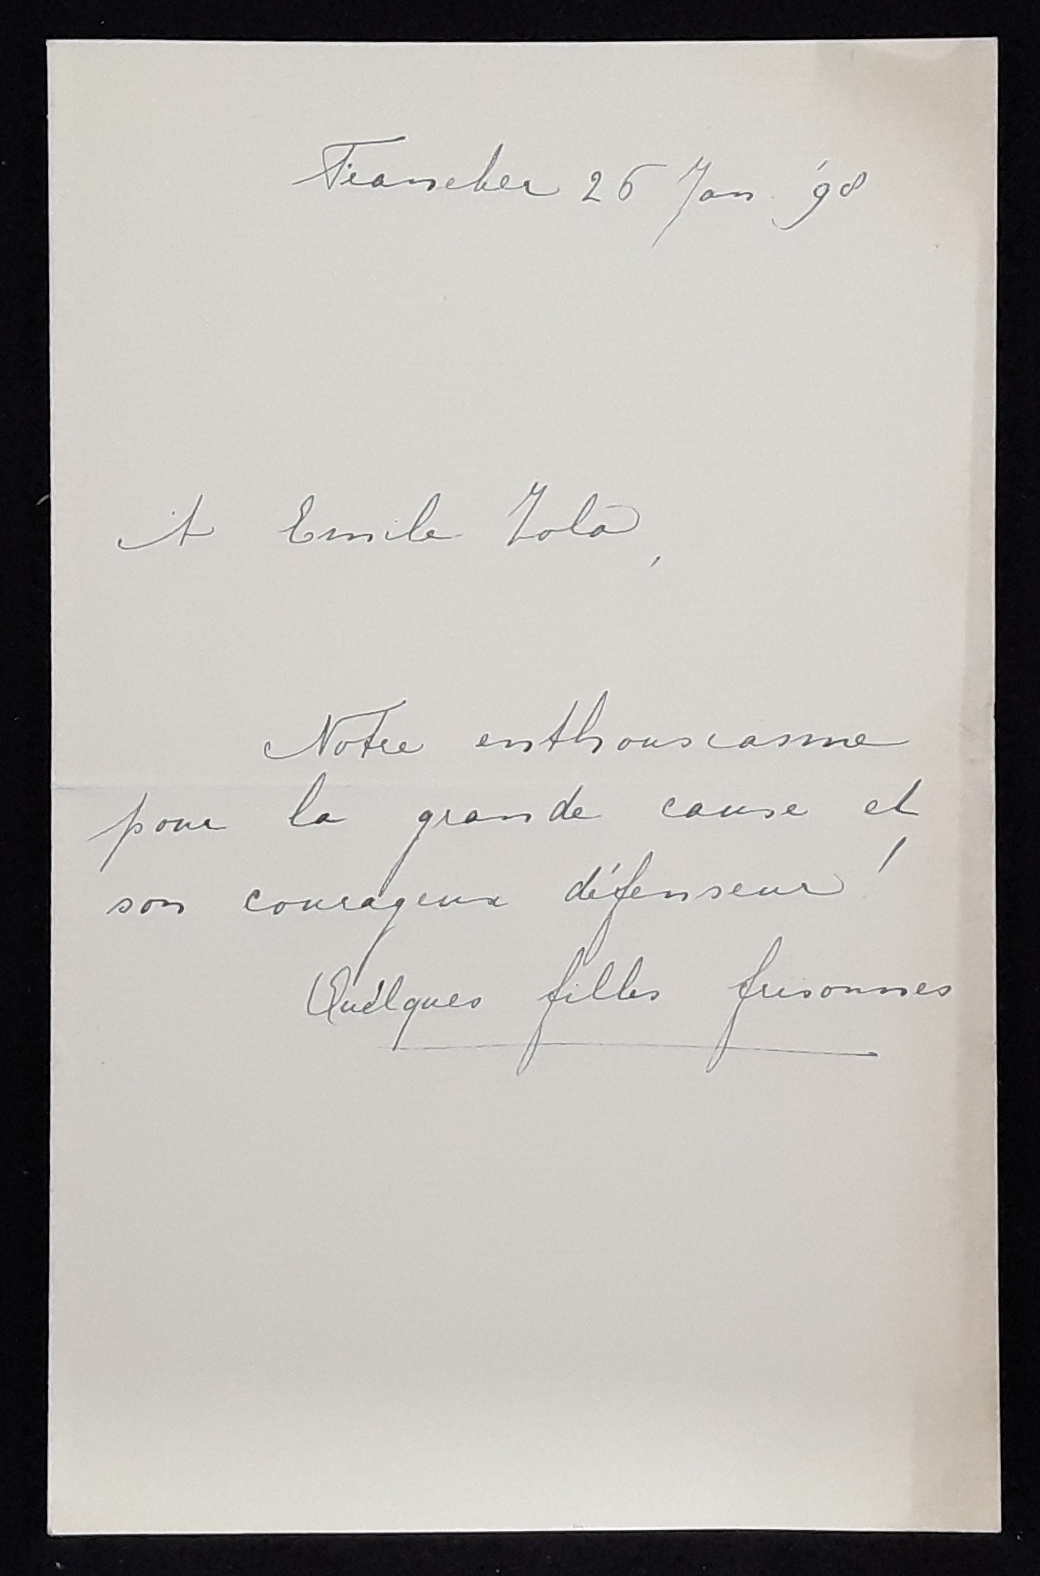 Franeker 26 Jan. '98
A Emile Zola,
Notre enthousiasme
pour la grande cause et
son courageux défenseur!
Quélques filles frisonnes